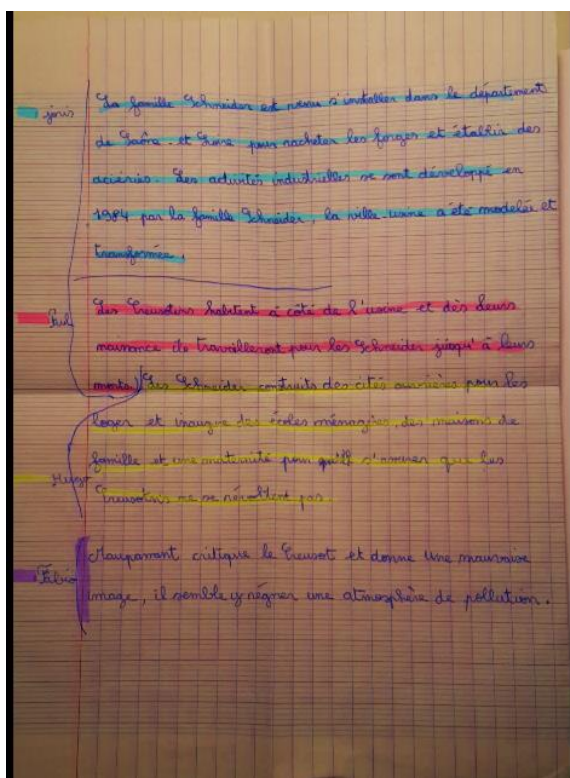 La famille Schneider est venu s'installer dans le département
joris
de Saône-et-Loire pour racheter les forges et établir des
aciéries. Les activités industrielles se sont développé en
1984 par la famille Schneider, la ville-usine a été modelée et
transformée.
Les Creusotins habitent à côté de l'usine et dès leurs
Paul
naissance ils travailleront pour les Schneider jusqu'à leurs
morts. Les Schneider construits des cités ouvrières pour les
loger et inaugure des écoles ménagères, des maisons de
famille et une maternité pour s'assurer que les
Hugo
Creusotins ne se révoltent pas.
Maupassant critique le Creusot et donne une mauvaise
Fabio
image, il semble y régner une atmosphère de pollution.